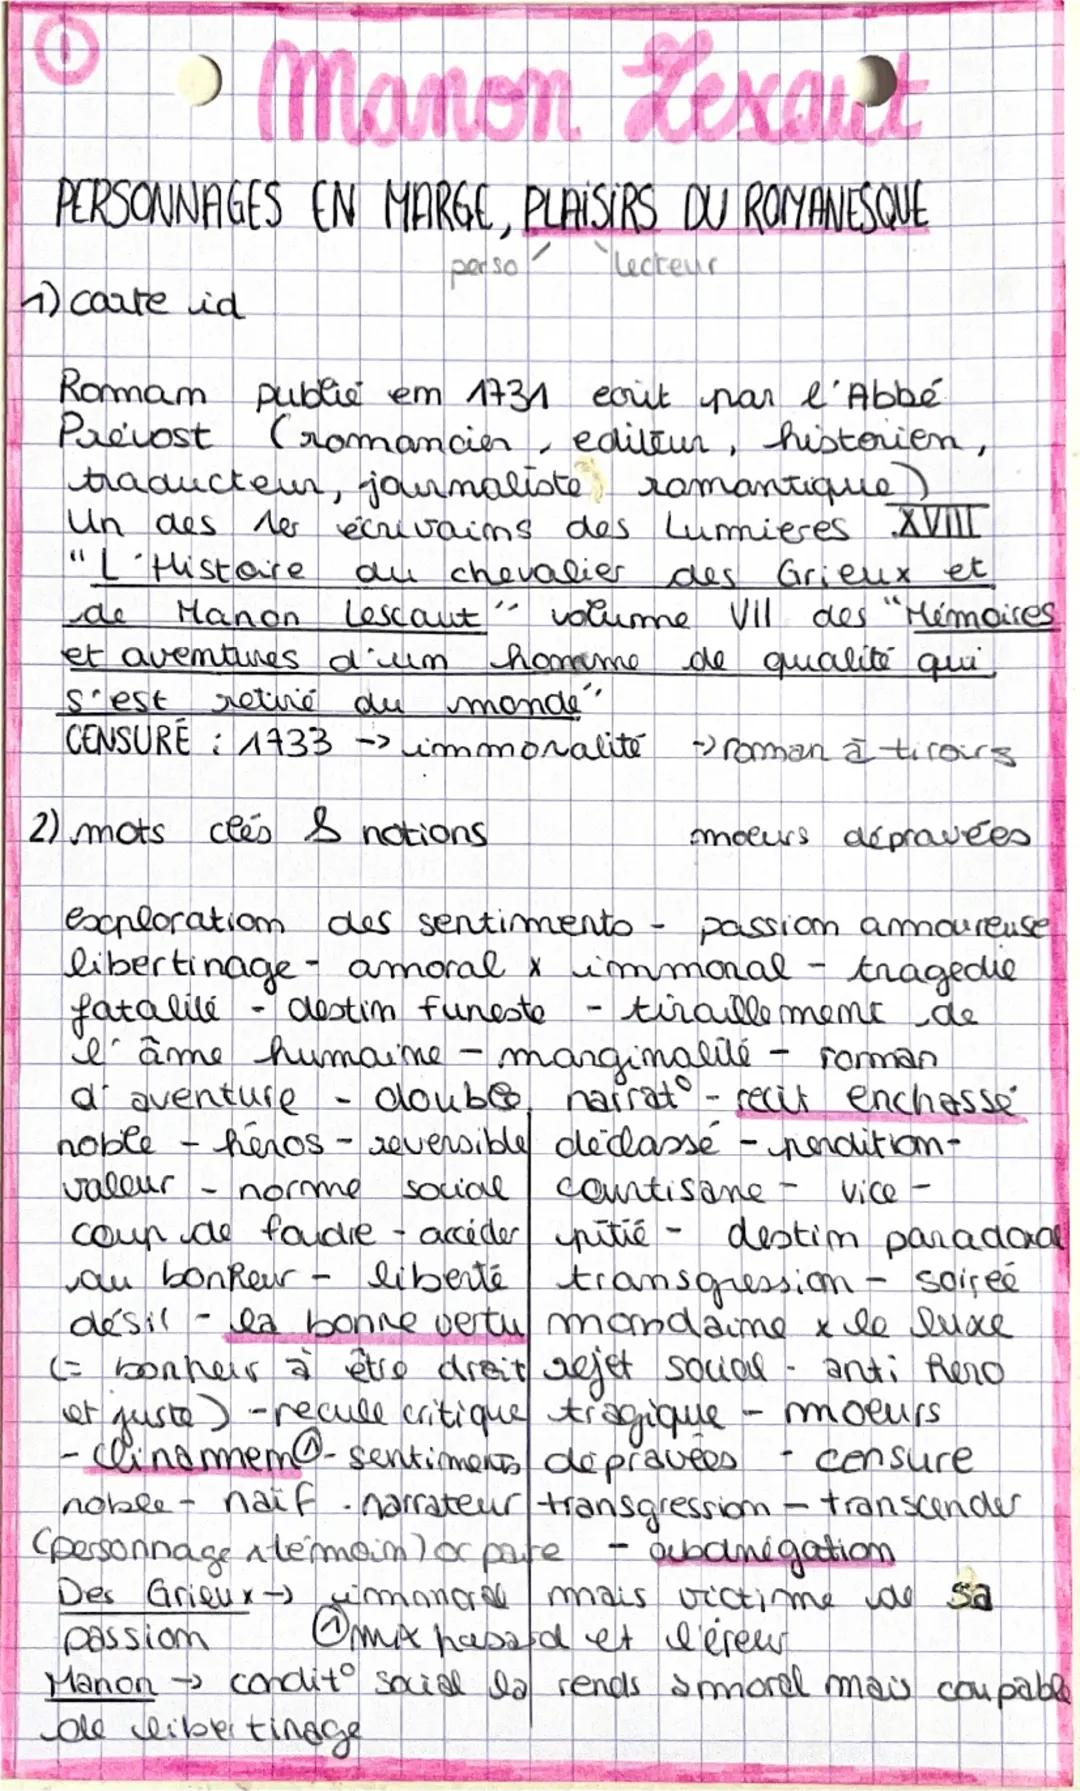 ①
Manon Lexaut
PERSONNAGES EN MARGE, PLAISIRS DU ROMANESQUE
perso lecteur
1) carte id
Romam publié em 1731 ecrit par l'Abbé
Prévost (romancier, editeur, historiem,
traducteur, journaliste romantique)
Un des 1er écrivaims des Lumieres XVIII
"L'Histoire du chevalier des Grieux et
de Manon Lescaut" volume VII des "Mémoires
et aventures d'um homme de qualité qui
s'est retiré du monde"
CENSURÉ : 1733 -> immoralité -> roman à tiroirs
2) mots clés & notions moeurs dépravées
exploration des sentiments - passion amoureuse
libertinage - amoral x immoral - tragedie
fatalité - destim funeste - tiraillement de
l'âme humaine - marginalité - roman
d'aventure - double narrat° - recit enchassé
noble - héros - reversible déclassé - perdition -
valeur - norme social courtisane - vice -
coup de foudre - accéder pitié - destim paradoxal
au bonheur - liberté transgression - soireé
désir - la bonne vertu mondaime x le luxe
(= bonheur à être droit rejet social - anti hero
et juste) - recule critique tragique - moeurs
- clinamem① - sentiments dépravées - censure
noble - naïf - narrateur transgression - transcender
(personnage x témoim) - abanégation
Des Grieux -> immoral mais victime de sa
passiom ① mix hasard et
Manon -> condit° social la rends amoral mais coupable
de libertinage